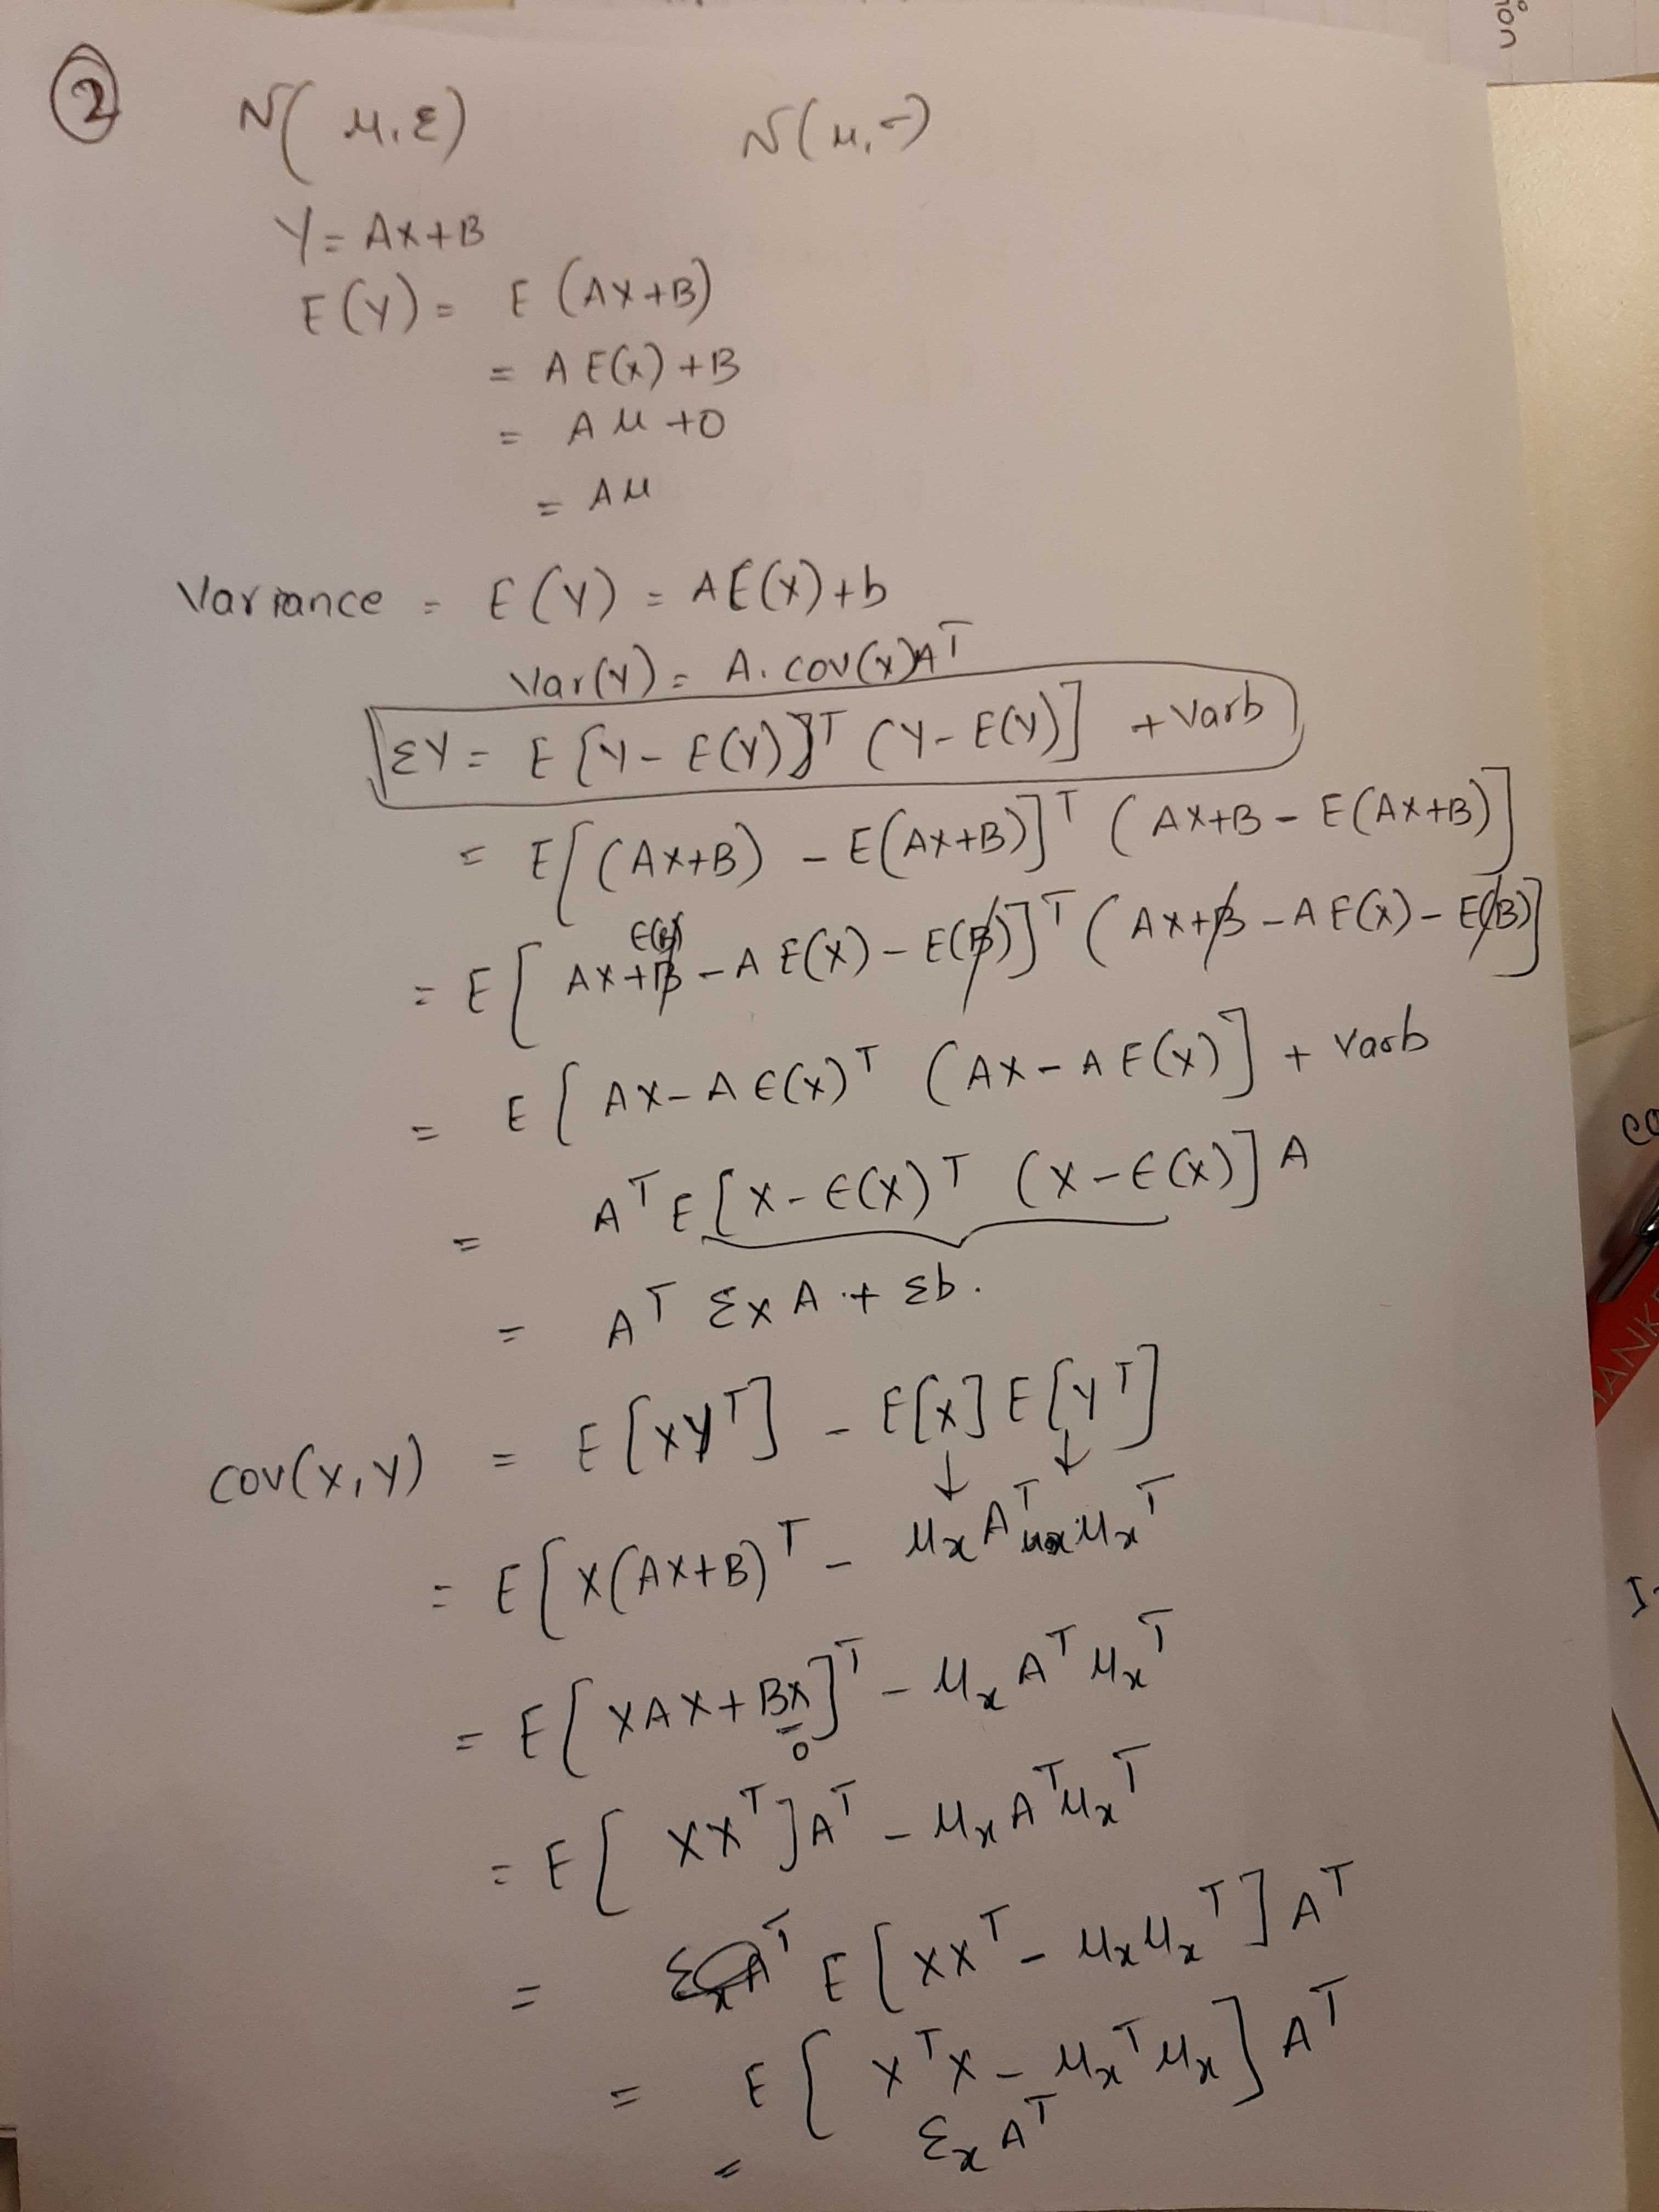 ② N(μ,Σ) N(μ,-)
Y = AX+B
E(Y) = E(AX+B)
= A E(X) + B
= Aμ + 0
= Aμ
Variance = E(Y) = AE(X)+b
Var(Y) = A. cov(X)A^T
ΣY = E[Y - E(Y)]^T (Y - E(Y)] + Varb
= E[(AX+B) - E(AX+B)]^T (AX+B - E(AX+B)]
= E[AX+B - A E(X) - E(B)]^T (AX+B - A E(X) - E(B)]
= E[AX - A E(X)^T (AX - A E(X)] + Varb
= A^T E[X - E(X)^T (X - E(X)] A
= A^T Σx A + Σb.
cov(X,Y) = E[XY^T] - E[X] E[Y^T]
↓ ↓
= E[X(AX+B)^T - μx A^T μx^T
= E[XAX + BX]^T - μx A^T μx^T
0
= E[XX^T]A^T - μx A^T μx^T
= E[XX^T - μx μx^T] A^T
= E[X^T X - μx^T μx] A^T
= Σx A^T
ion
co
HANK
I